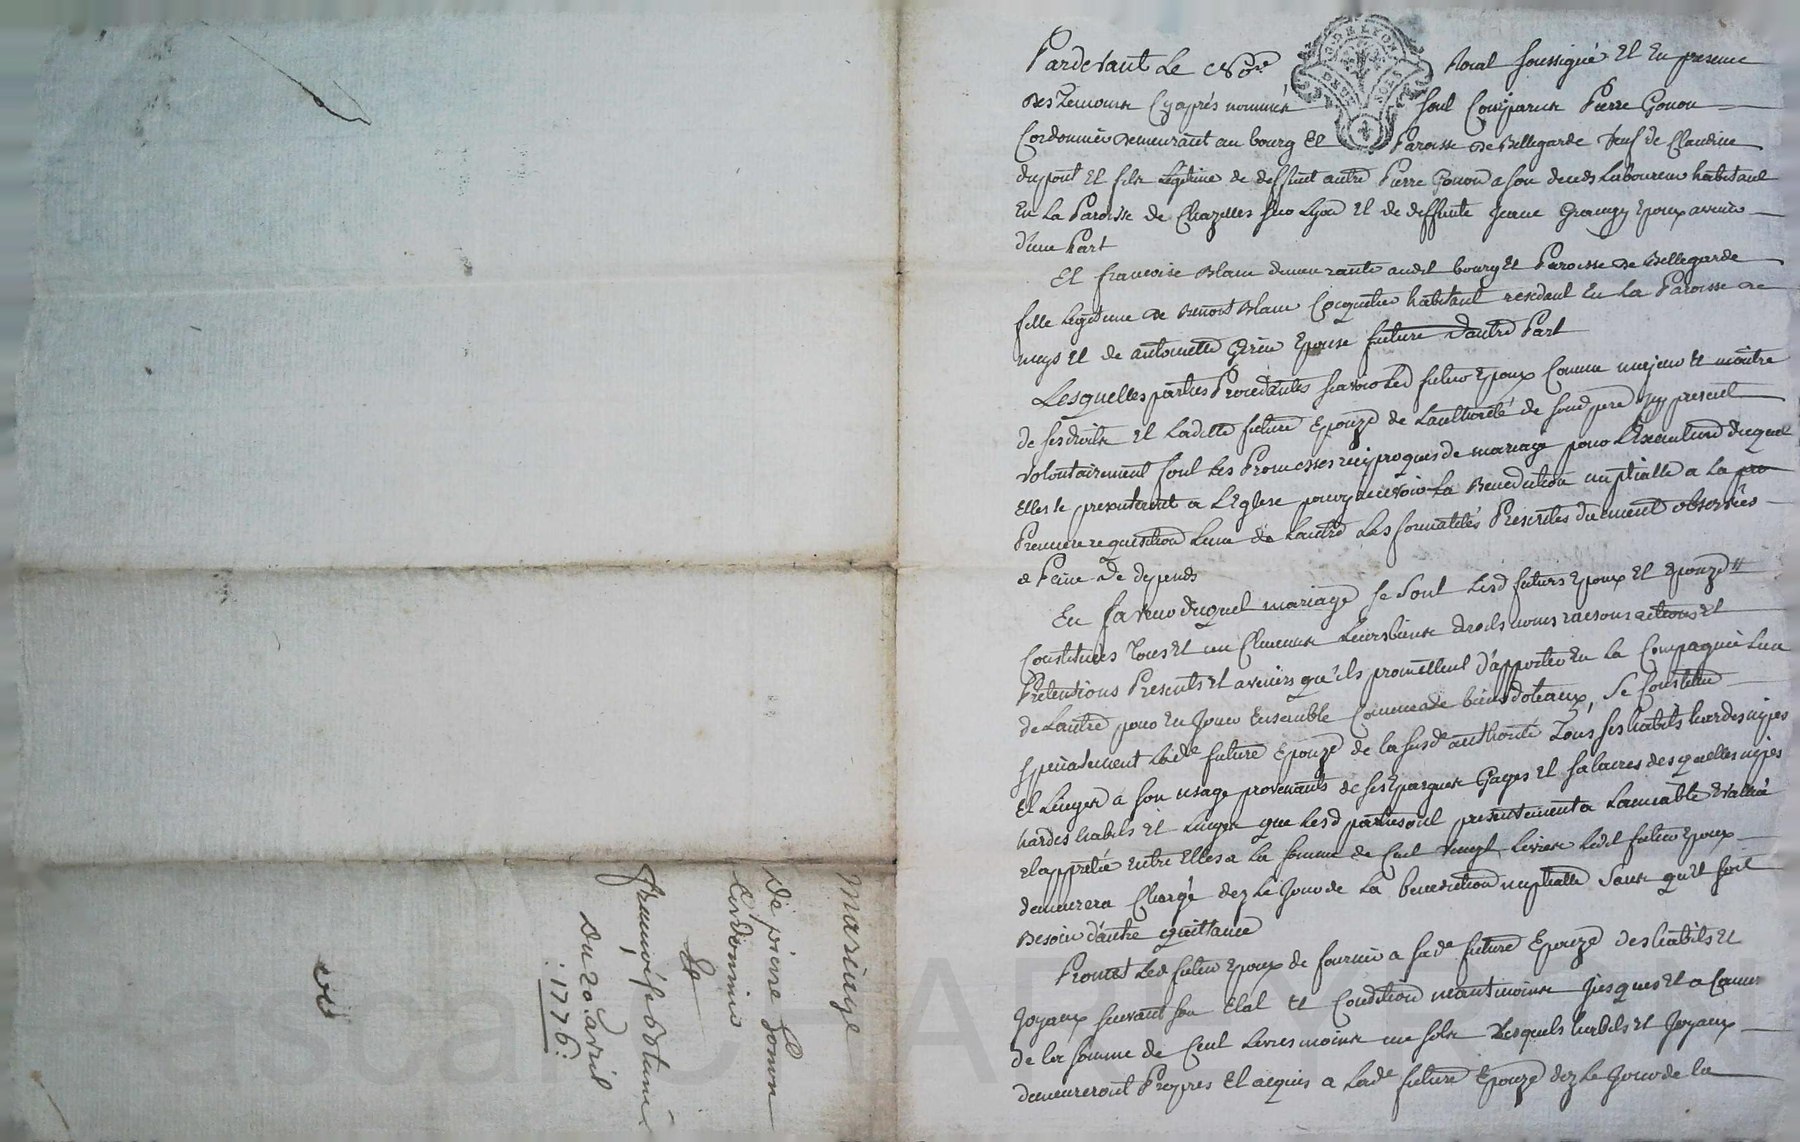 Pardevant Le No.re Roial soussigné Et En presence
des Temoins Cyaprés nommés sont Comparus Pierre Gonon
Cordonnier demeurant au bourg Et Paroisse de Bellegarde veuf de Claudine
dupont Et fils Legitime de deffunt autre Pierre Gonon a son deceds Laboureur habitant
En La Paroisse de Chazelles sur Lyon Et de deffunte Jeane Grangy Epoux avenir
d'une Part
Et francoise Blanc demeurante audit bourg Et Paroisse de Bellegarde
fille Legitime de Benoit Blanc Cocquetier habitant residant En La Paroisse de
meys Et de antoinette Epouse future d'autre Part
Lesquelles parties Procedantes scavoir Led futur Epoux Comme majeur Et maitre
de ses droits Et Laditte future Epouze de Lauthorité de sond pere icy present
volontairement font Les Promesses reciproques de mariage pour L'Execution duquel
Elles se presenteront a L'Eglise pour y recevoir La Benediction nuptialle a La pre
Premiere requisition Lune de Lautre Les formalités Prescrites duement observées
a Peine de depends
En faveur duquel mariage se sont Lesd futurs Epoux Et Epouze
Constitués Tous Et un Chacuns Leurs biens droits noms raisons actions Et
Pretentions Presents Et avenirs qu'ils promettent d'apporter En La Compagnie Lun
de Lautre pour En Jouir Ensemble Comme de biens doteaux, Se Constitue
specialement Lade future Epouze de la susde authorité Tous ses habits hardes nipes
Et Linges a son usage provenants de ses Epargnes Gages Et salaires desquelles nipes
hardes habits Et Linges que Lesd parties ont presentement a Lamiable Evallué
Et appretié entre Elles a La somme de Cent vingt Livres Ledit futur Epoux
demeurera Chargé dez Le Jour de La benediction nuptialle Sans qu'il soit
Besoin d'autre quittance
Promet Led futur Epoux de fournir a sade future Epouze des habits Et
Joyaux suivant son Etat Et Condition neantmoins Jusques Et a Concur
de la somme de Cent Livres moins un sols Lesquels habits Et Joyaux
demeureront Propres Et acquis a Lade future Epouze dez Le Jour de la
G. DE LYON
DEUX SOLS
Mariage
De pierre Gonon
Cordonnier
Et
françoise Blanc
Du 20. avril
1776: